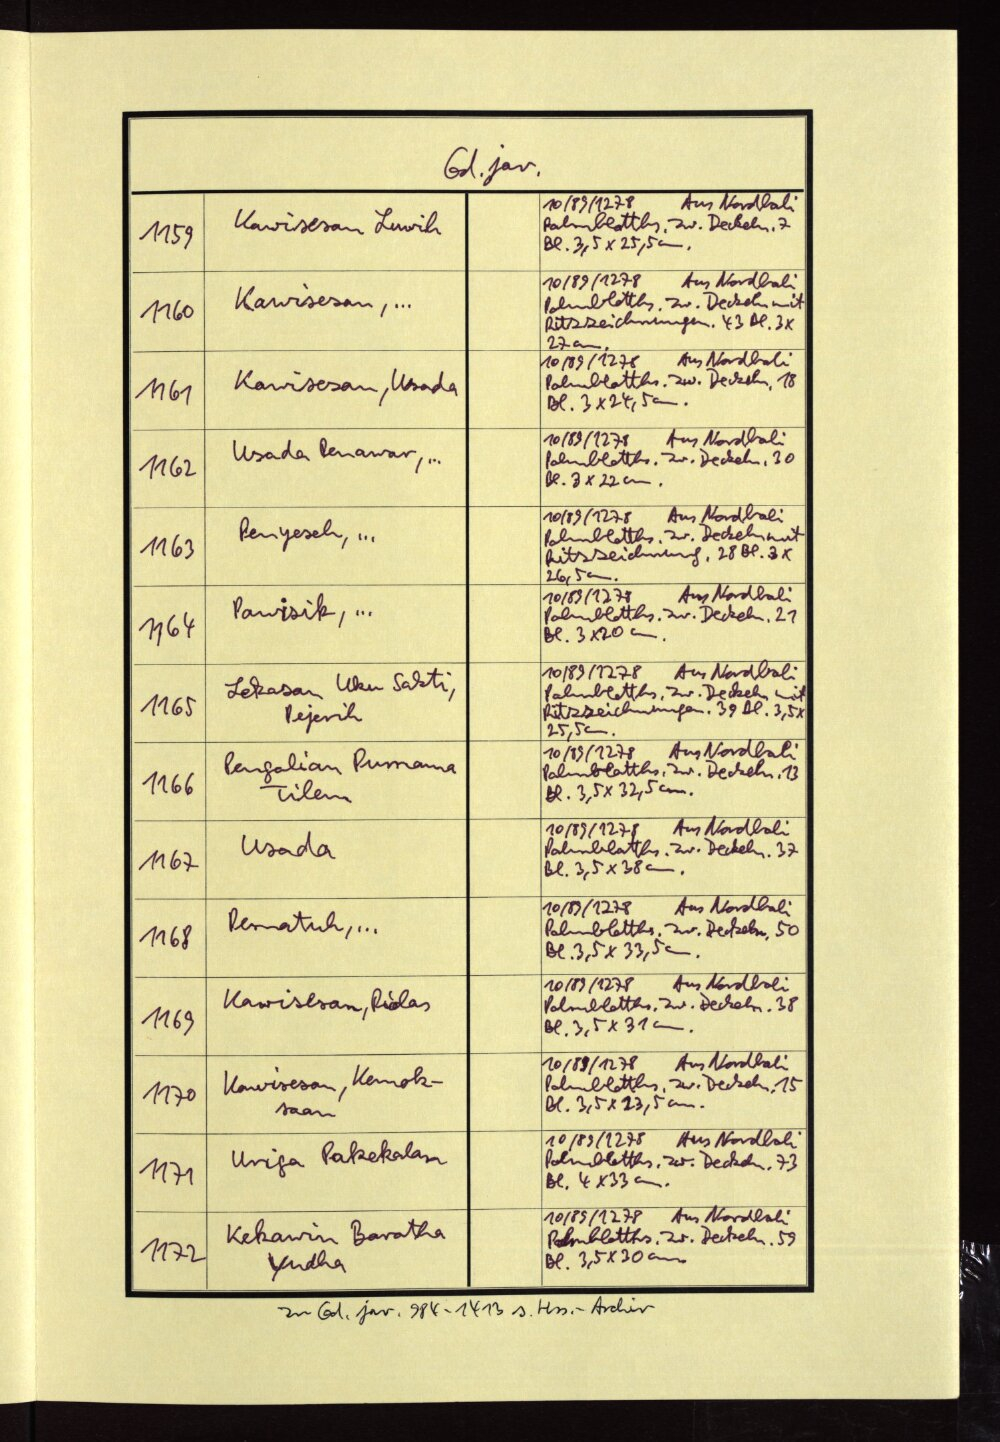 Cod. jav.
1159
Kawisesan Luwih
10/89/1278 Aus Nordbali
Palmblatths. zw. Deckeln. 7
Bl. 3,5 x 25,5 cm.
1160
Kawisesan, ...
10/89/1278 Aus Nordbali
Palmblatths. zw. Deckeln mit
Ritzzeichnungen. 43 Bl. 3 x
27 cm.
1161
Kawisesan, Usada
10/89/1278 Aus Nordbali
Palmblatths. zw. Deckeln. 18
Bl. 3 x 24,5 cm.
1162
Usada Penawar, ...
10/89/1278 Aus Nordbali
Palmblatths. zw. Deckeln. 30
Bl. 3 x 22 cm.
1163
Pengeseh, ...
10/89/1278 Aus Nordbali
Palmblatths. zw. Deckeln mit
Ritzzeichnung. 28 Bl. 3 x
26,5 cm.
1164
Pawisik, ...
10/89/1278 Aus Nordbali
Palmblatths. zw. Deckeln. 21
Bl. 3 x 20 cm.
1165
Lekasan Uku Sakti,
Pejerih
10/89/1278 Aus Nordbali
Palmblatths. zw. Deckeln mit
Ritzzeichnungen. 39 Bl. 3,5 x
25,5 cm.
1166
Pengalian Purnama
Tilem
10/89/1278 Aus Nordbali
Palmblatths. zw. Deckeln. 13
Bl. 3,5 x 32,5 cm.
1167
Usada
10/89/1278 Aus Nordbali
Palmblatths. zw. Deckeln. 37
Bl. 3,5 x 38 cm.
1168
Pematuh, ...
10/89/1278 Aus Nordbali
Palmblatths. zw. Deckeln. 50
Bl. 3,5 x 33,5 cm.
1169
Kawisesan,
10/89/1278 Aus Nordbali
Palmblatths. zw. Deckeln. 38
Bl. 3,5 x 31 cm.
1170
Kawisesan, Kemok-
saan
10/89/1278 Aus Nordbali
Palmblatths. zw. Deckeln. 15
Bl. 3,5 x 23,5 cm.
1171
Uriga Pakekalan
10/89/1278 Aus Nordbali
Palmblatths. zw. Deckeln. 73
Bl. 4 x 33 cm.
1172
Kekawin Baratha
Yudha
10/89/1278 Aus Nordbali
Palmblatths. zw. Deckeln. 59
Bl. 3,5 x 30 cm
zu Cod. jav. 984-1413 s. Hss.-Archiv